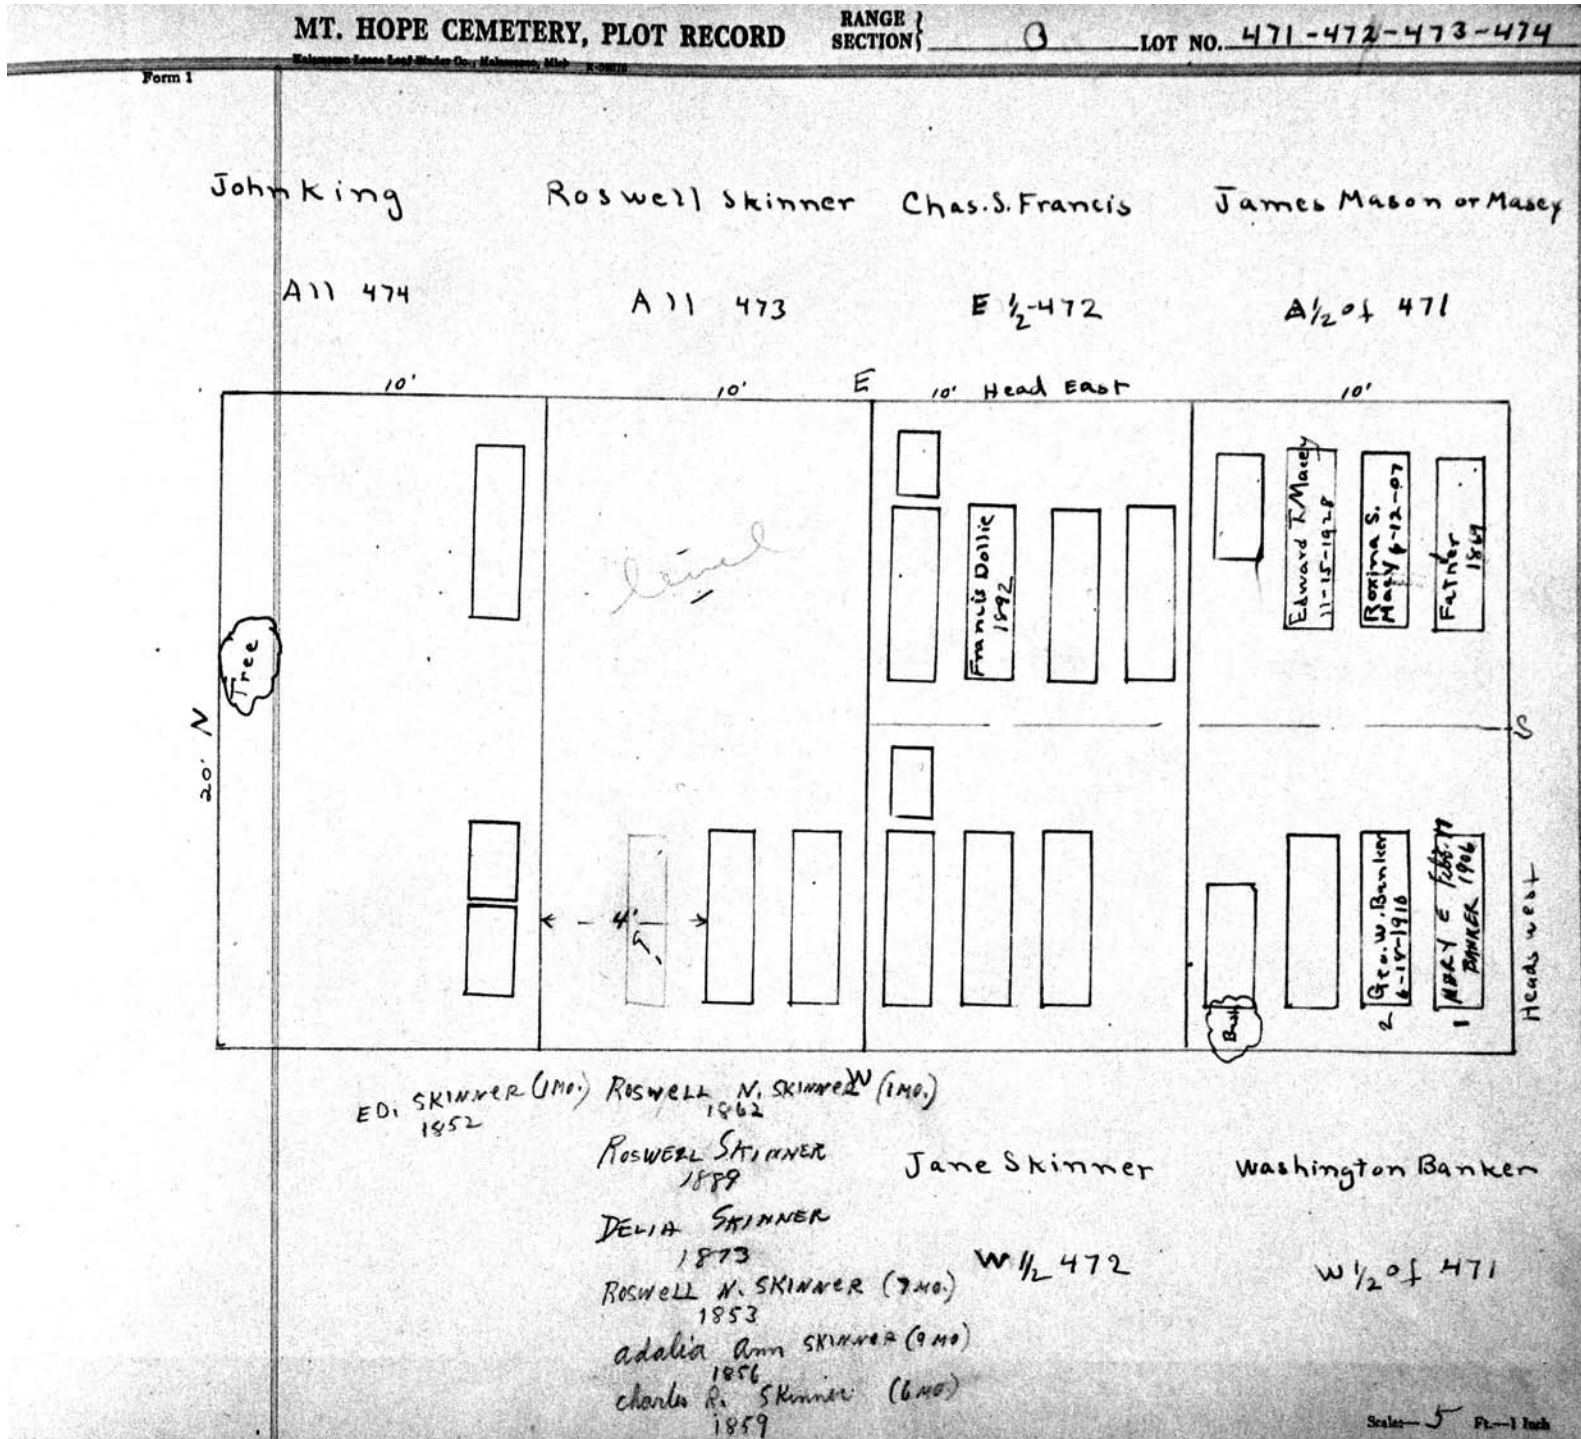 MT. HOPE CEMETERY, PLOT RECORD
RANGE SECTION
LOT NO. 471-472-473-474
Kalamazoo Loose Leaf Binder Co., Kalamazoo, Mich
Form 1
John King
Roswell Skinner
Chas. S. Francis
James Mason or Masey
All 474
All 473
E 1/2-472
1/2 of 471
10'
10'
E
10' Head East
10'
Francis Dollie
1892
Edward T Macey
11-15-1928
Roxina S.
Macy 6-12-07
Father
1869
Tree
N
20'
S
4'
Geo. W. Banker
2
MARY E Feb.
BANKER 1906
1
Heads west
W
ED. SKINNER (1 MO.)
1852
ROSWELL N. SKINNER (1 MO.)
1862
ROSWELL SKINNER
1889
DELIA SKINNER
1873
ROSWELL N. SKINNER (7 MO.)
1853
adalia Ann SKINNER (9 MO)
1856
charles R. SKinner (6 MO)
1859
Jane Skinner
W 1/2 472
Washington Banker
W 1/2 of 471
Scale— 5 Ft.—1 Inch